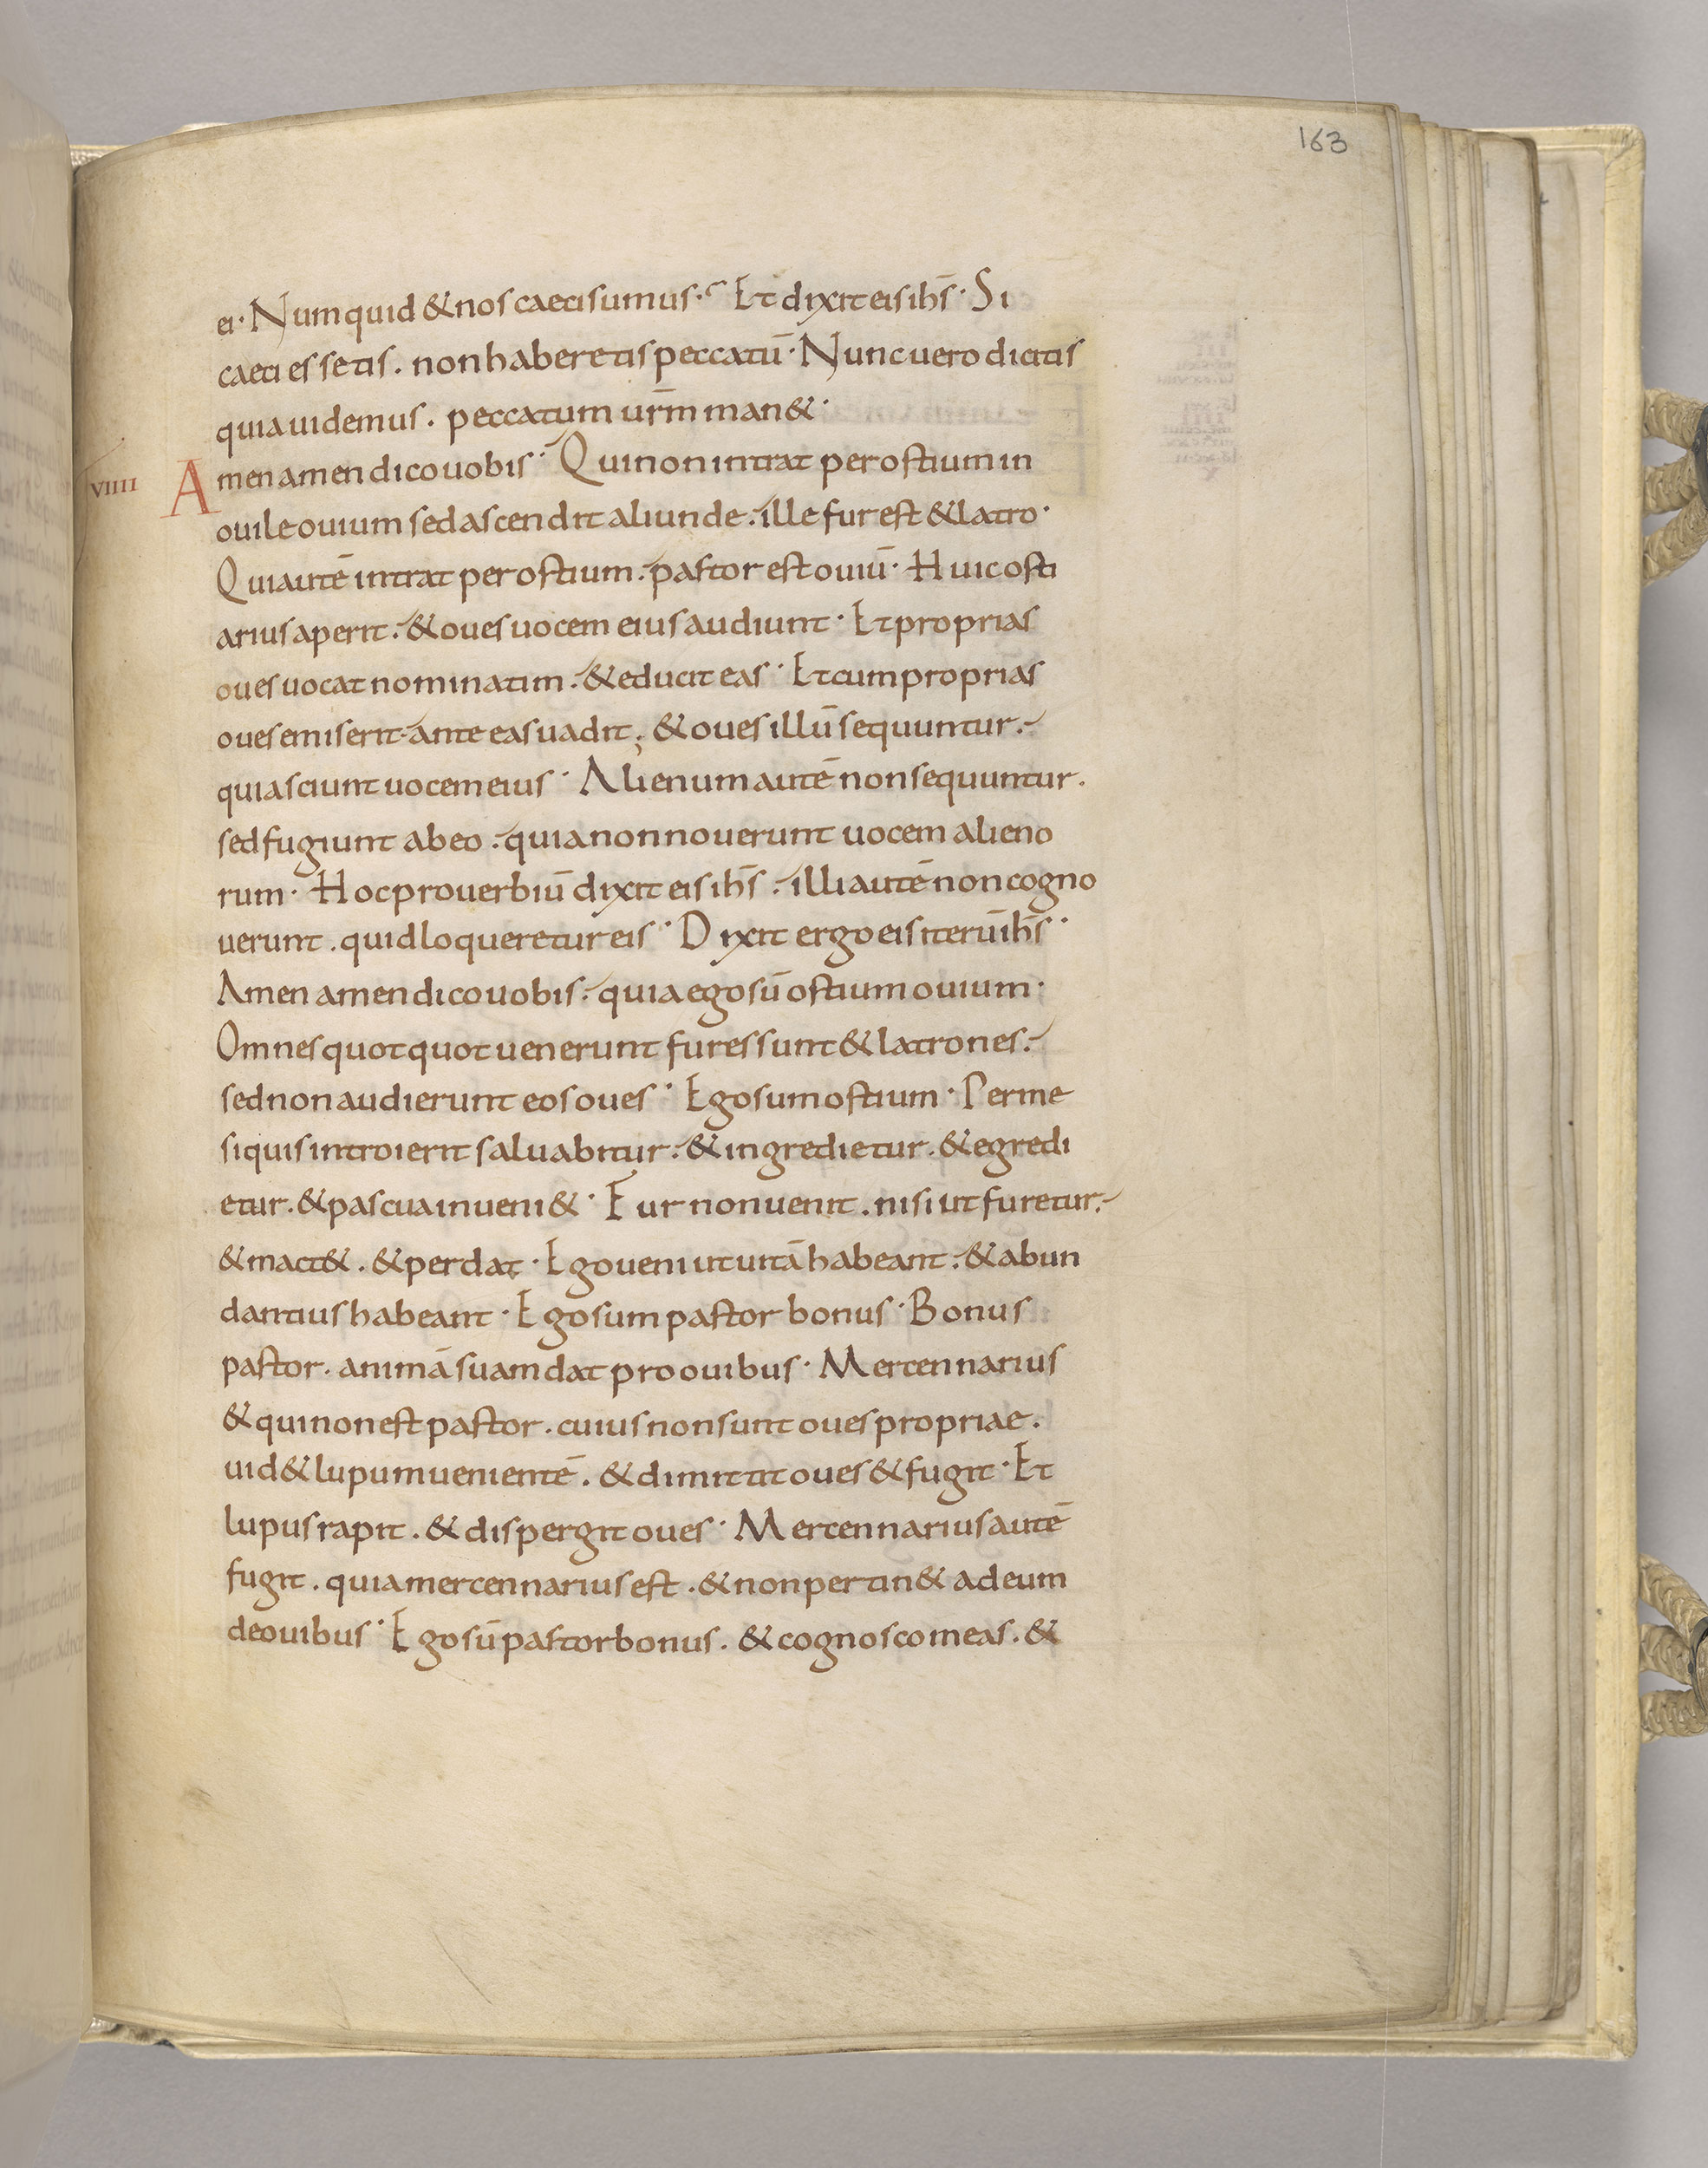 163
ei· Numquid & nos caeci sumus· Et dixit eis ihs̄· Si
caeci essetis. non haberetis peccatū· Nunc uero dicitis
quia uidemus. peccatum ur̄m man&·
VIIII Amen amen dico uobis· Qui non intrat per ostium in
ouile ouium sed ascendit aliunde. ille fur est & latro·
Qui autē intrat per ostium. pastor est ouiū· Huic osti
arius aperit. & oues uocem eius audiunt· Et proprias
oues uocat nominatim. & educit eas· Et cum proprias
oues emiserit. ante eas uadit; & oues illū sequuntur.
quia sciunt uocem eius· Alienum autē non sequuntur.
sed fugiunt ab eo. quia non nouerunt uocem alieno
rum· Hoc prouerbiū dixit eis ihs̄. illi autē non cogno
uerunt. quid loqueretur eis· Dixit ergo eis iterū ihs̄·
Amen amen dico uobis. quia ego sū ostium ouium·
Omnes quotquot uenerunt fures sunt & latrones.
sed non audierunt eos oues· Ego sum ostium· Per me
si quis introierit saluabitur. & ingredietur. & egredi
etur. & pascua inueni&· Fur non uenit. nisi ut furetur.
& mact&. & perdat· Ego ueni ut uitā habeant. & abun
dantius habeant· Ego sum pastor bonus· Bonus
pastor. animā suam dat pro ouibus· Mercennarius
& qui non est pastor. cuius non sunt oues propriae.
uid& lupum uenientē. & dimittit oues & fugit· Et
lupus rapit. & dispergit oues· Mercennarius autē
fugit. quia mercennarius est. & non pertin& ad eum
de ouibus· Ego sū pastor bonus. & cognosco meas. &